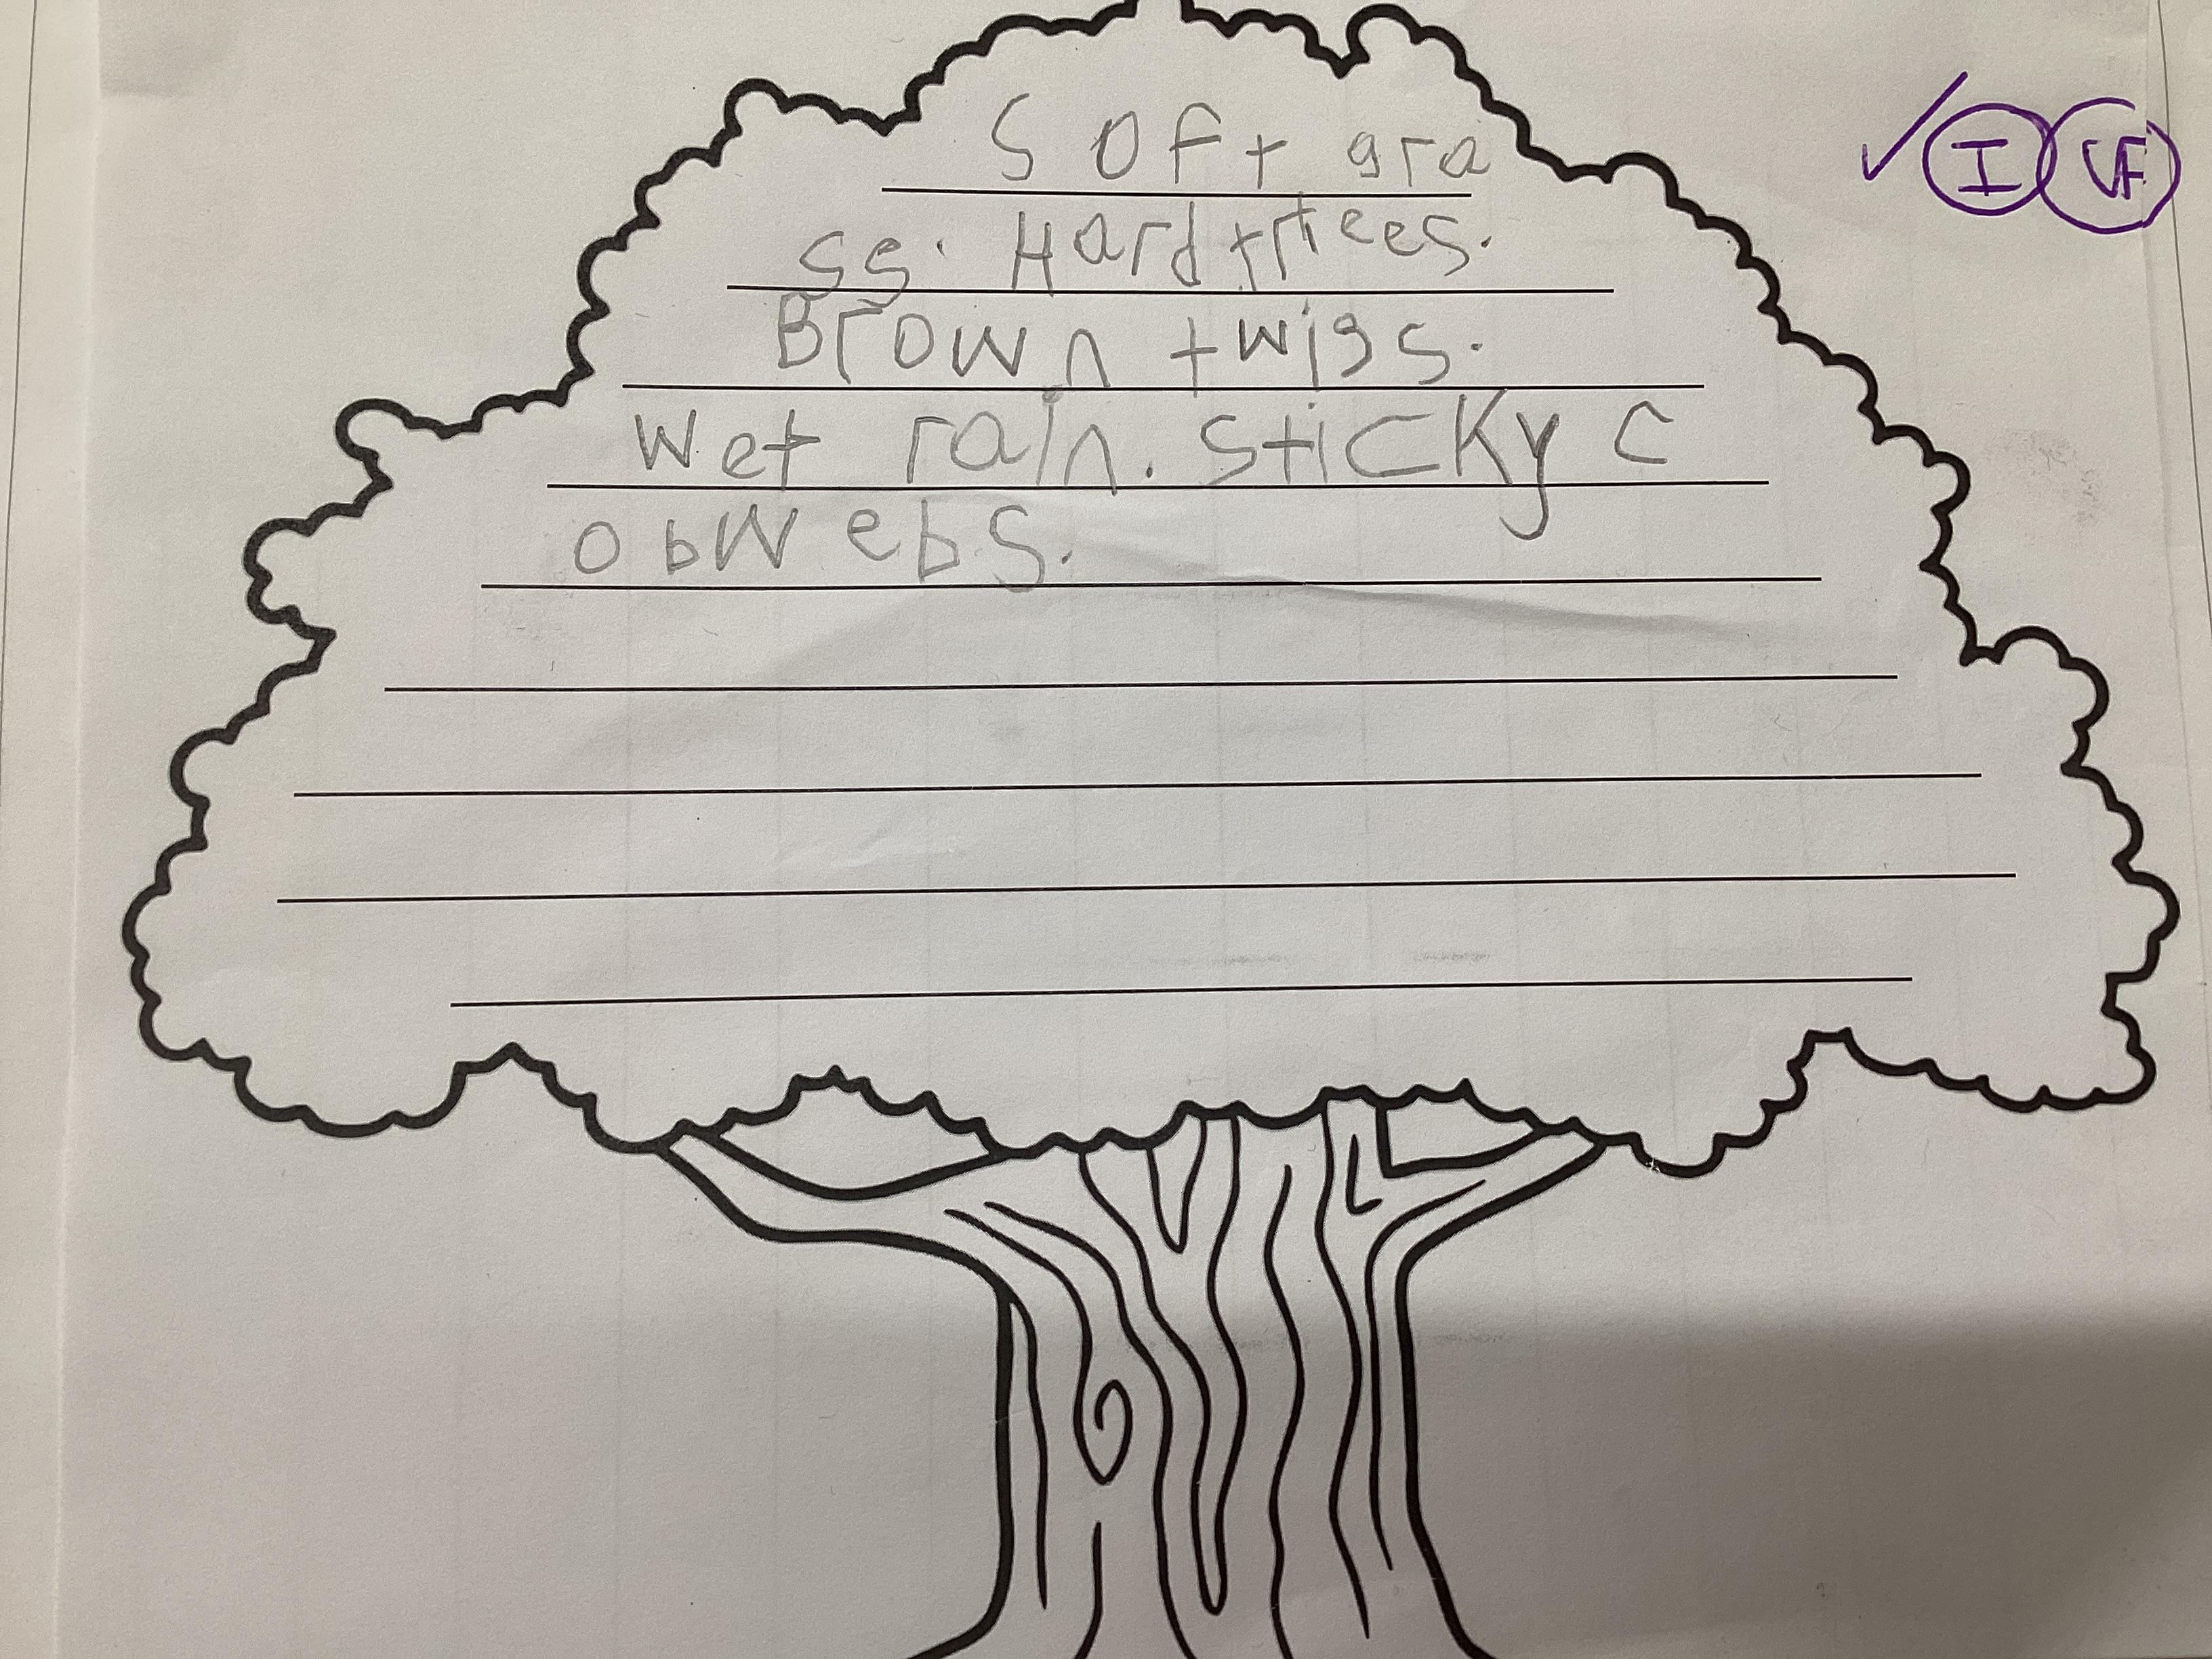 Soft gra
ss. Hard trtees.
Brown twigs.
Wet rain. sticky c
obwebs.
✓ I VF